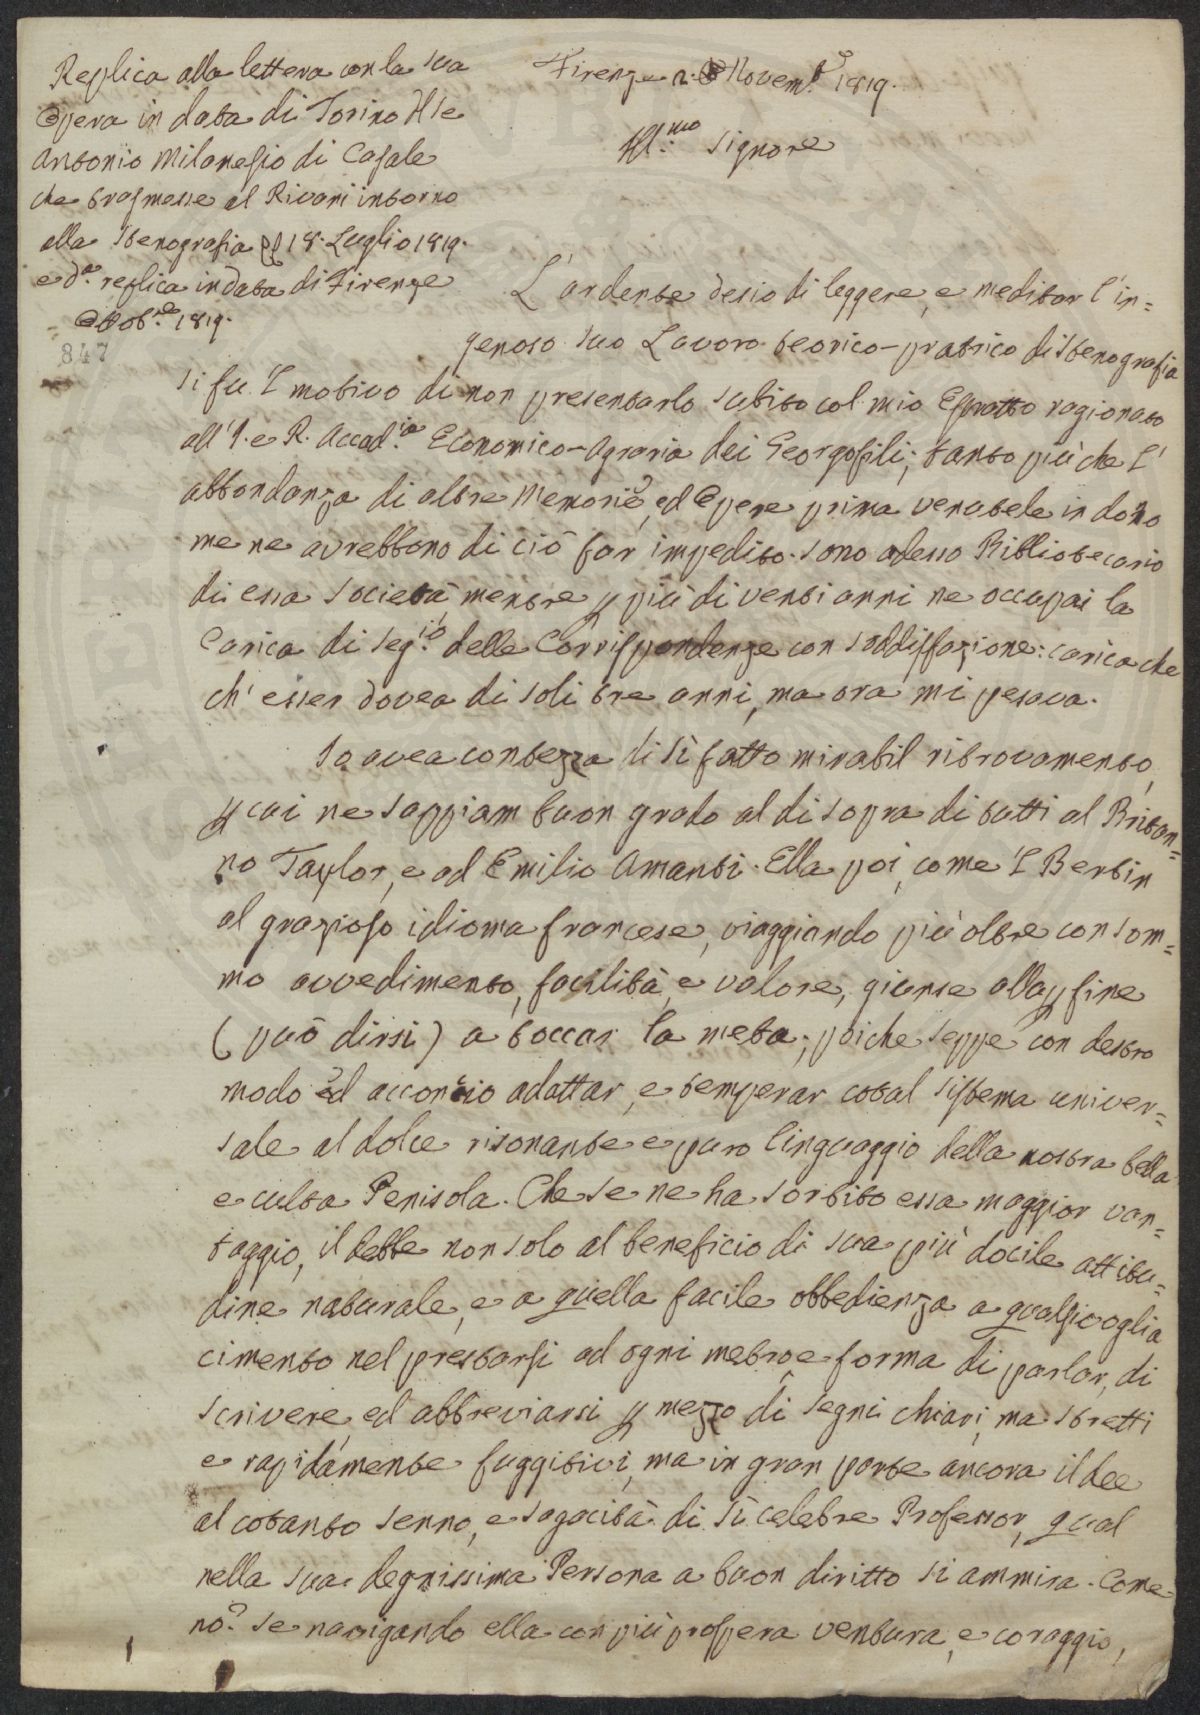 Replica alla lettera con la sua
Opera in data di Torino
Antonio Milanesio di Casale
che trasmesse al Rivani intorno
alla Stenografia 18. Luglio 1819.
e d.a replica in data di Firenze
Ottob.re 1819.
847
Firenze 2. Novem.e 1819.
Ill.mo Signore
L'ardente desio di leggere, e meditar l'in=
genoso suo Lavoro teorico-pratico di Stenografia
si fu 'l motivo di non presentarlo subito col mio Estratto ragionato
all'I. e R. Accad.ia Economico-Agraria dei Georgofili; tanto più che l'
abbondanza di altre Memorie, ed Opere prima venutele in dono
me ne avrebbono di ciò far impedito. Sono adesso Bibliotecario
di essa Società mentre p più di venti anni ne occupai la
Carica di Seg.io delle Corrispondenze con soddisfazione: carica che
ch'esser dovea di soli tre anni, ma ora mi pesava.
Io avea contezza di sì fatto mirabil ritrovamento,
p cui ne sappiam buon grado al di sopra di tutti al Britan=
no Taylor, e ad Emilio Amanti. Ella poi, come 'l Bertin
al grazioso idioma francese, viaggiando più oltre con som=
mo avvedimento, facilità, e valore, giunse alla p fine
(può dirsi) a toccar la meta; poiche seppe con destro
modo ed acconcio adattar, e temperar cotal sistema univer=
sale al dolce risonante e puro linguaggio della nostra bella
e culta Penisola. Che se ne ha sortito essa maggior van=
taggio, il debbe non solo al beneficio di sua più docile attitu=
dine naturale, e a quella facile obbedienza a qualsivoglia
cimento nel prestarsi ad ogni metro e forma di parlar, di
scrivere, ed abbreviarsi p mezzo di segni chiari, ma stretti
e rapidamente fuggitivi, ma in gran parte ancora il dee
al cotanto senno, e sagacità di sì celebre Professor, qual
nella sua degnissima Persona a buon diritto si ammira. Come
no? Se navigando ella con più prospera ventura, e coraggio,